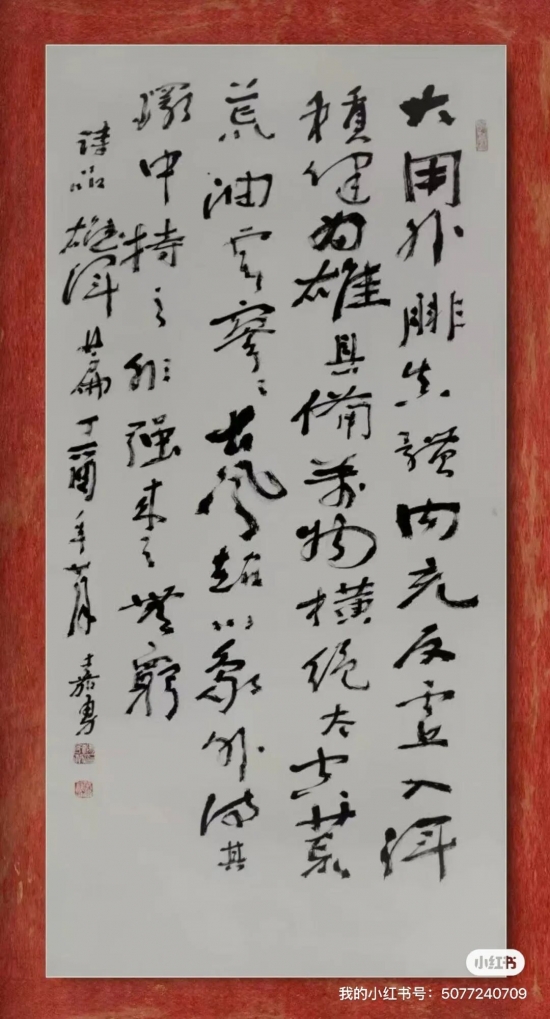 大用外腓真體内充反虚入渾
積健为雄具備萬物横绝太空荒
荒油雲寥〻長風超以象外得其
環中持之匪强来之無窮
詩品雄渾篇丁酉年月嘉勇
小红书
我的小红书号：5077240709